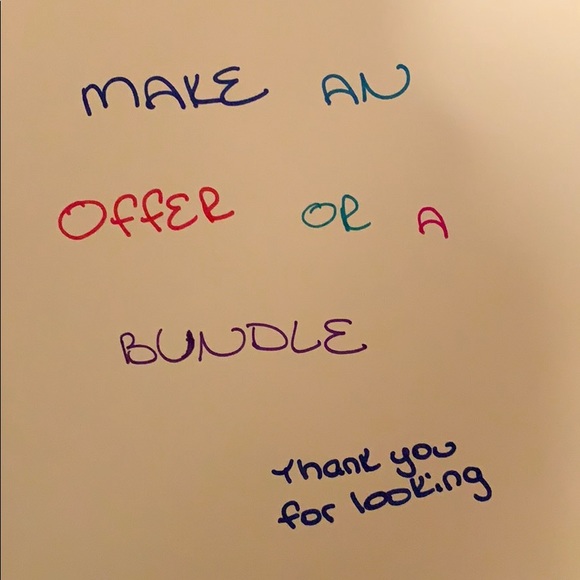 MAKE AN
OFFER OR A
BUNDLE
Thank you
for looking